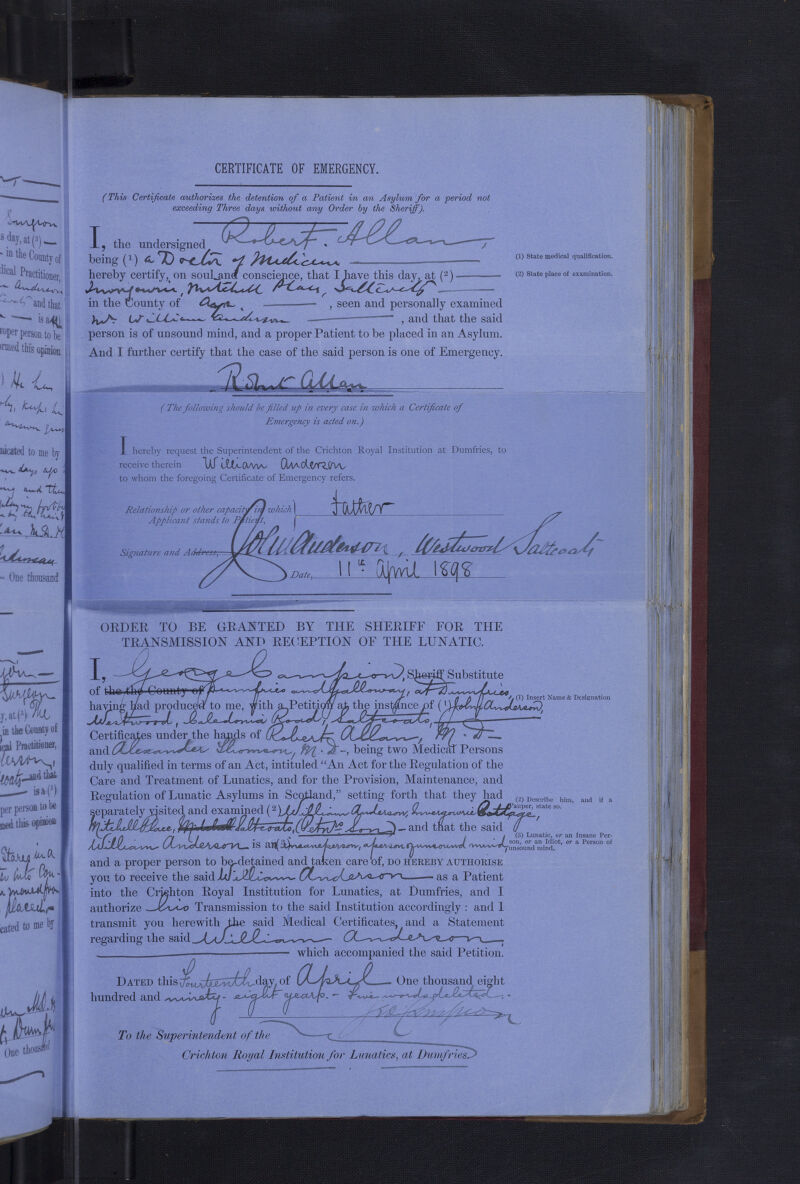 CERTIFICATE OF EMERGENCY.
(This Certificate authorizes the detention of a Patient in an Asylum for a period not
exceeding Three days without any Order by the Sheriff).
I, the undersigned Robert Allan,
being (1) a Doctor of Medicine
hereby certify, on soul and conscience, that I have this day, at (2)
Invergowrie, Mitchell Place, Saltcoats
in the County of Ayr, seen and personally examined
Mr. William Anderson, and that the said
person is of unsound mind, and a proper Patient to be placed in an Asylum.
And I further certify that the case of the said person is one of Emergency.
Robert Allan
(1) State medical qualification.
(2) State place of examination.
(The following should be filled up in every case in which a Certificate of
Emergency is acted on.)
I hereby request the Superintendent of the Crichton Royal Institution at Dumfries, to
receive therein William Anderson
to whom the foregoing Certificate of Emergency refers.
Relationship or other capacity in which
Applicant stands to Patient, Father
Signature and Address, John Anderson, Westwood Saltcoats
Date, 11th April 1898
ORDER TO BE GRANTED BY THE SHERIFF FOR THE
TRANSMISSION AND RECEPTION OF THE LUNATIC.
I, George Campsion, Sheriff Substitute
of the the County of Dumfries and Galloway, at Dumfries,
having had produced to me, with a Petition at the instance of (1) John Anderson,
Westwood, Caledonia Road, Saltcoats,
Certificates under the hands of Robert Allan, M.D-
and Alexander Thomson, M.D-, being two Medical Persons
duly qualified in terms of an Act, intituled "An Act for the Regulation of the
Care and Treatment of Lunatics, and for the Provision, Maintenance, and
Regulation of Lunatic Asylums in Scotland," setting forth that they had
separately visited and examined (2) William Anderson, Invergowrie Cottage,
Mitchell Place, Mitchell Saltcoats, (Petnrs. son) - and that the said
William Anderson is an (3) insane person, a person of unsound mind
and a proper person to be detained and taken care of, DO HEREBY AUTHORISE
you to receive the said William Anderson as a Patient
into the Crichton Royal Institution for Lunatics, at Dumfries, and I
authorize his Transmission to the said Institution accordingly: and I
transmit you herewith the said Medical Certificates, and a Statement
regarding the said William Anderson,
which accompanied the said Petition.
DATED this Fourteenth day of April One thousand eight
hundred and ninety-eight years. - Five words deleted.
To the Superintendent of the
Crichton Royal Institution for Lunatics, at Dumfries.
(1) Insert Name & Designation
(2) Describe him, and if a
Pauper, state so.
(3) Lunatic, or an Insane Per-
son, or an Idiot, or a Person of
unsound mind.
Surgeon
s day, at (2)
in the County of
dical Practitioner,
and that
is a
roper person to be
rmed this opinion
He has
nicated to me by
One thousand
Surgeon
y, at (2) The
in the County of
ical Practitioner,
and that
is a (2)
per person to be
med this opinion
Stares in a
cated to me by
One thousand